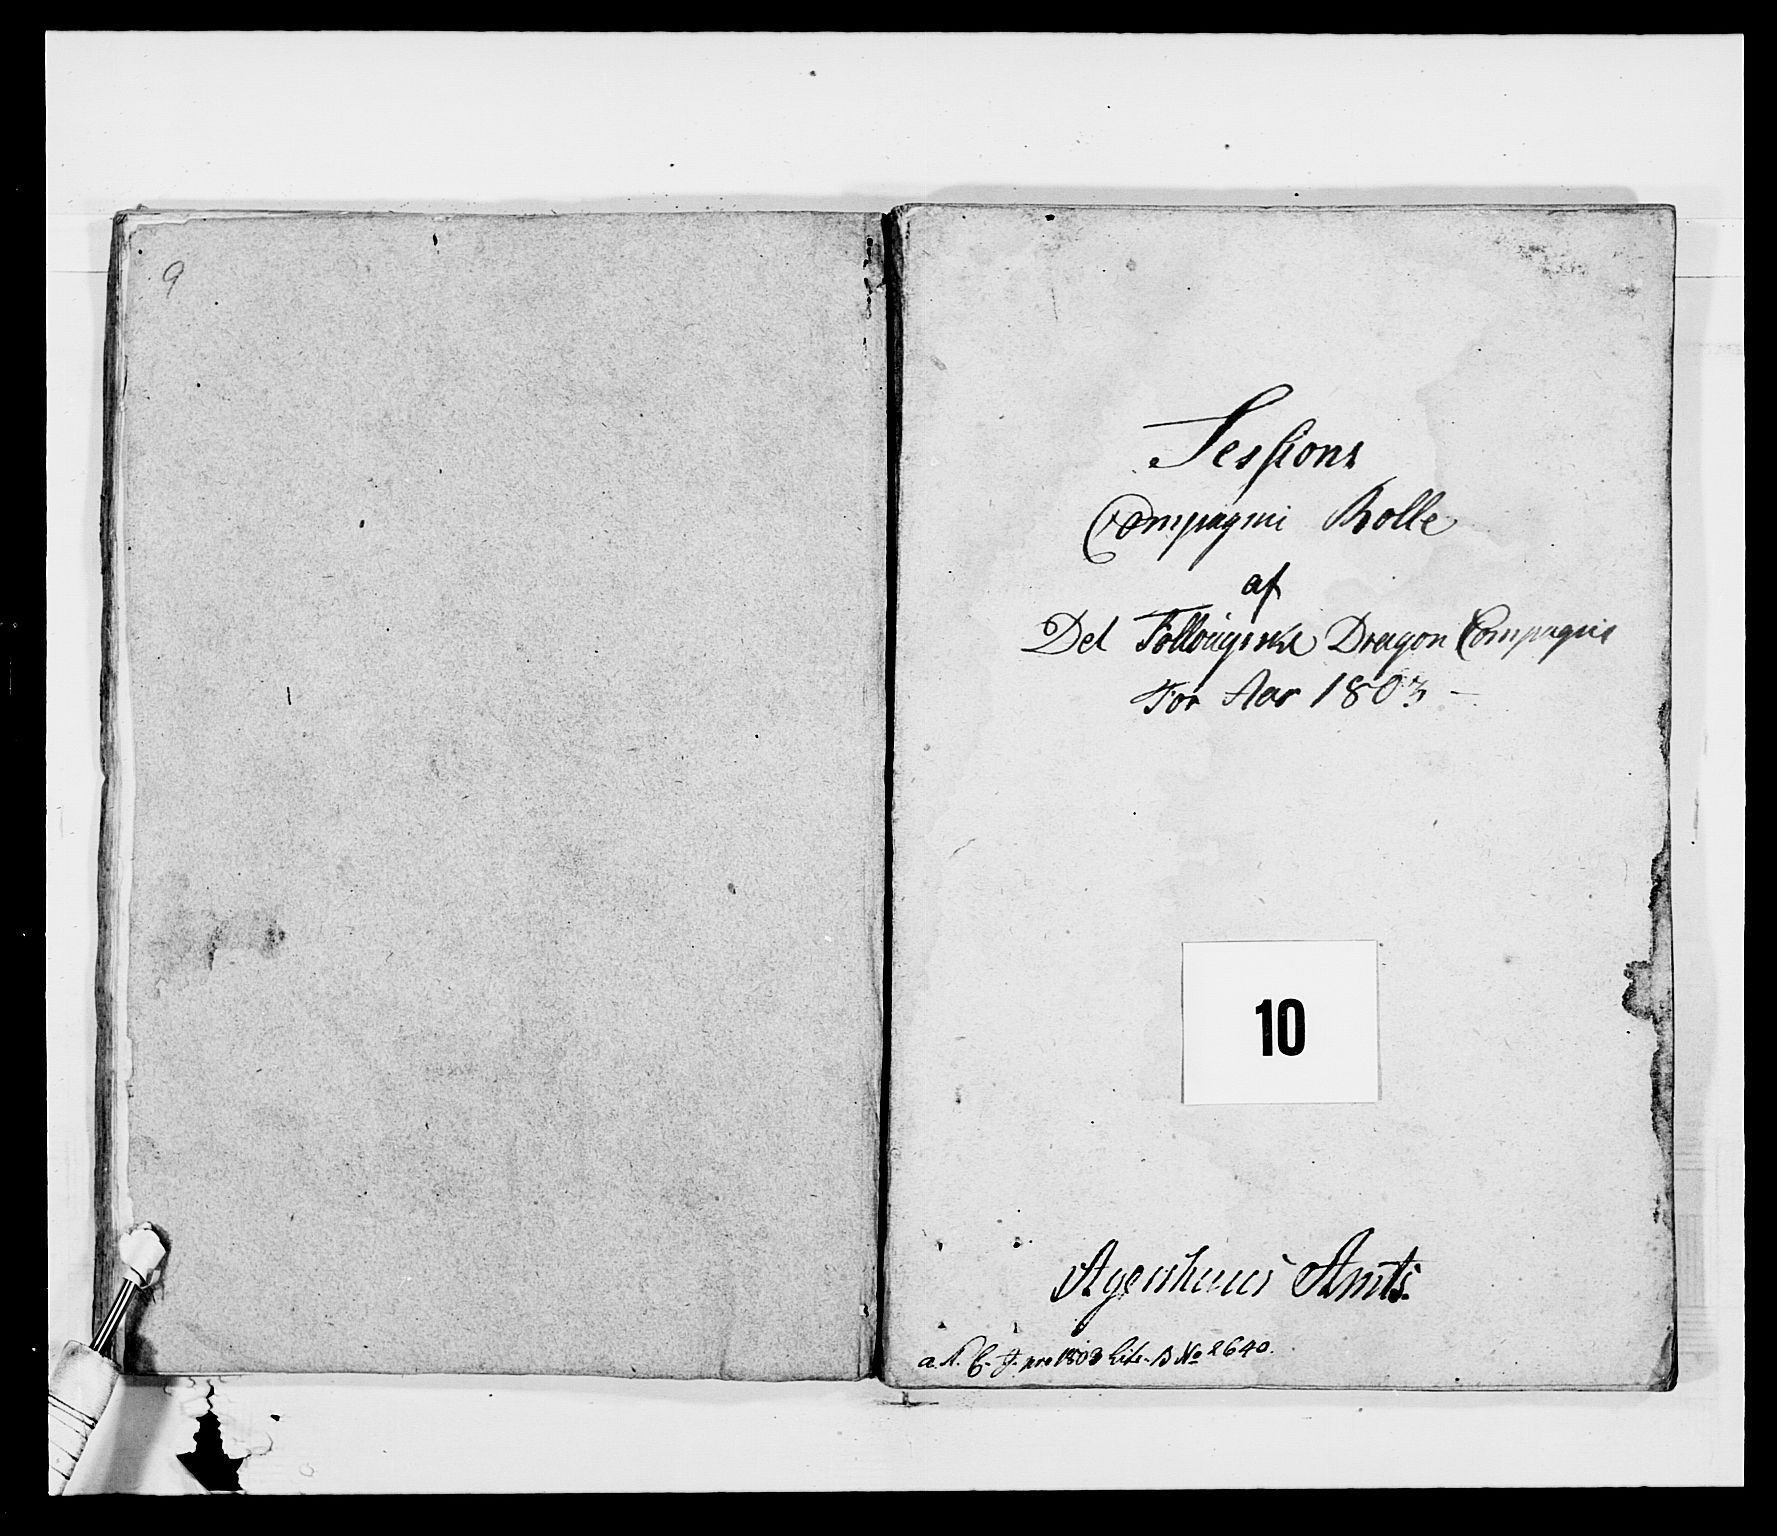 9
Sessions
Compagni Rolle
af
Det Follougiske Dragon Compagnie
For Aar 1803 –
10
Agershuus Amts.
a. N. C. J. pro 1803 Litr. B No 2640.